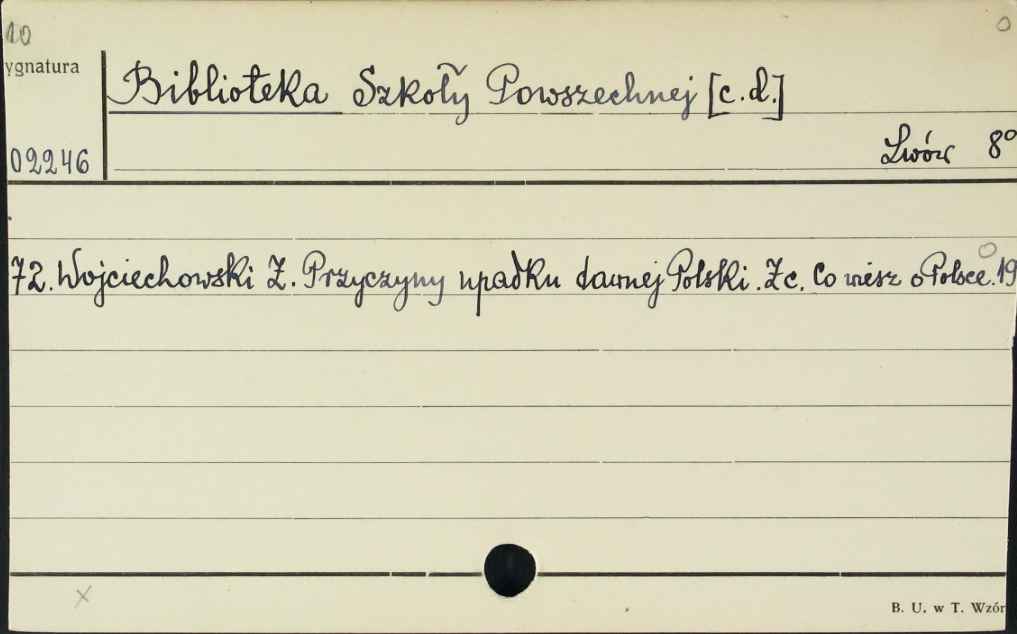 10
ygnatura
Biblioteka Szkoły Powszechnej [c.d.]
02246
Lwów 8°
72. Wojciechowski Z. Przyczyny upadku dawnej Polski. Z c. Co wiesz o Polsce. 19
B. U. w T. Wzór